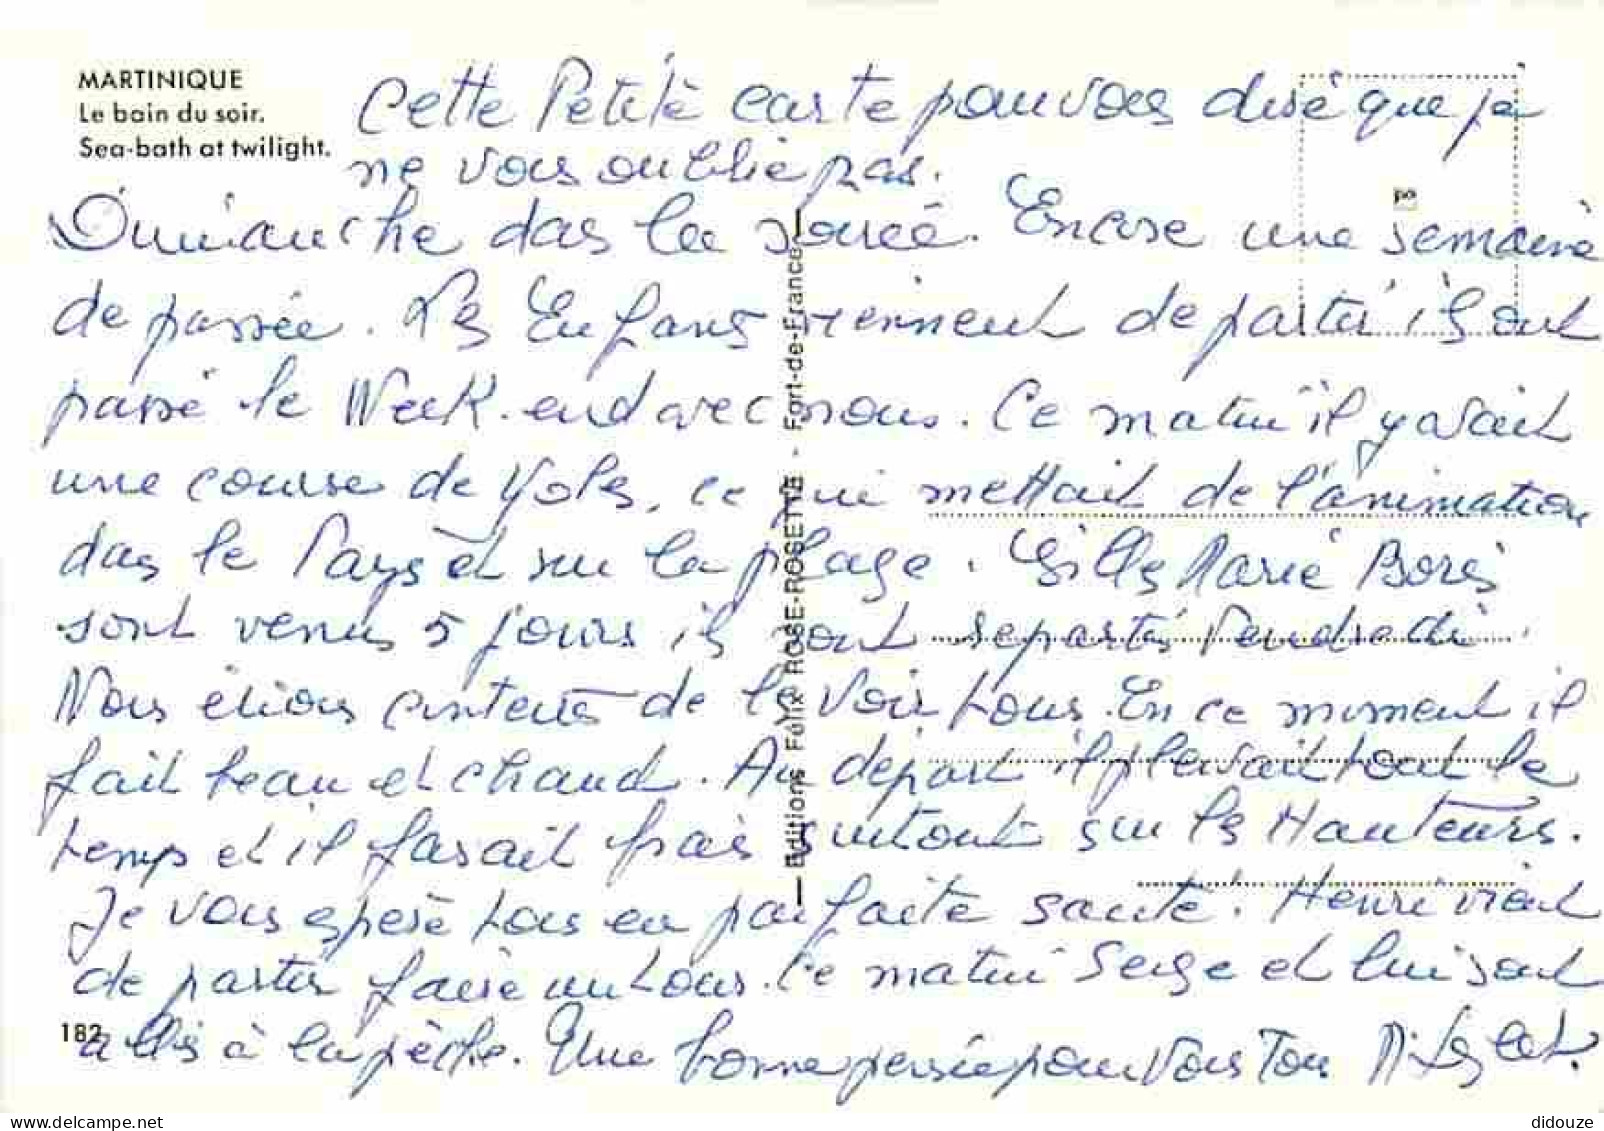 MARTINIQUE
Le bain du soir.
Sea-bath at twilight.
Cette Petite carte pour vous dire que je
ne vous oublie pas.
po
Dimanche das la soirée. Encore une semaine
de passée. Les Enfans viennent de partir ils ont
passé le Week-end avec nous. Ce matin il y avait
une course de Yoles, ce qui mettait de l'animation
das le Pays et sur la plage. Gilles Marie Boris
sont venus 5 jours ils sont repartis Vendredi.
Nous étions contents de les voir tous. En ce moment il
fait beau et chaud. Au départ il pleuvait tout le
temps et il fasait frais surtout sur les Hauteurs.
Je vous espère tous en parfaite santé. Henri vient
de partir faire un tour. Ce matin Serge et lui sont
allés à la pèche. Une bonne pensée pour Vous Tous
182
Editions Félix ROSE-ROSETTE - Fort-de-France
didouze